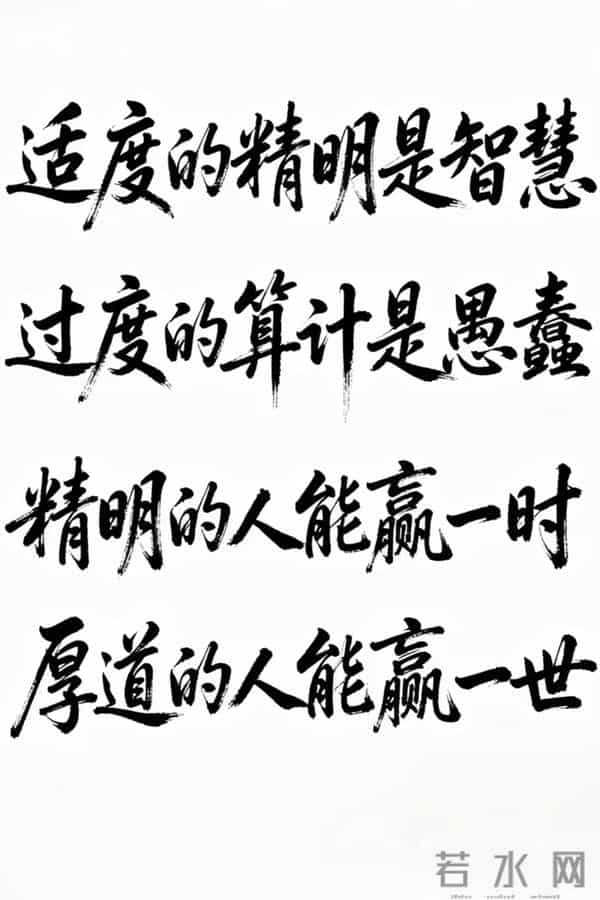 适度的精明是智慧
过度的算计是愚蠢
精明的人能赢一时
厚道的人能赢一世
若水网